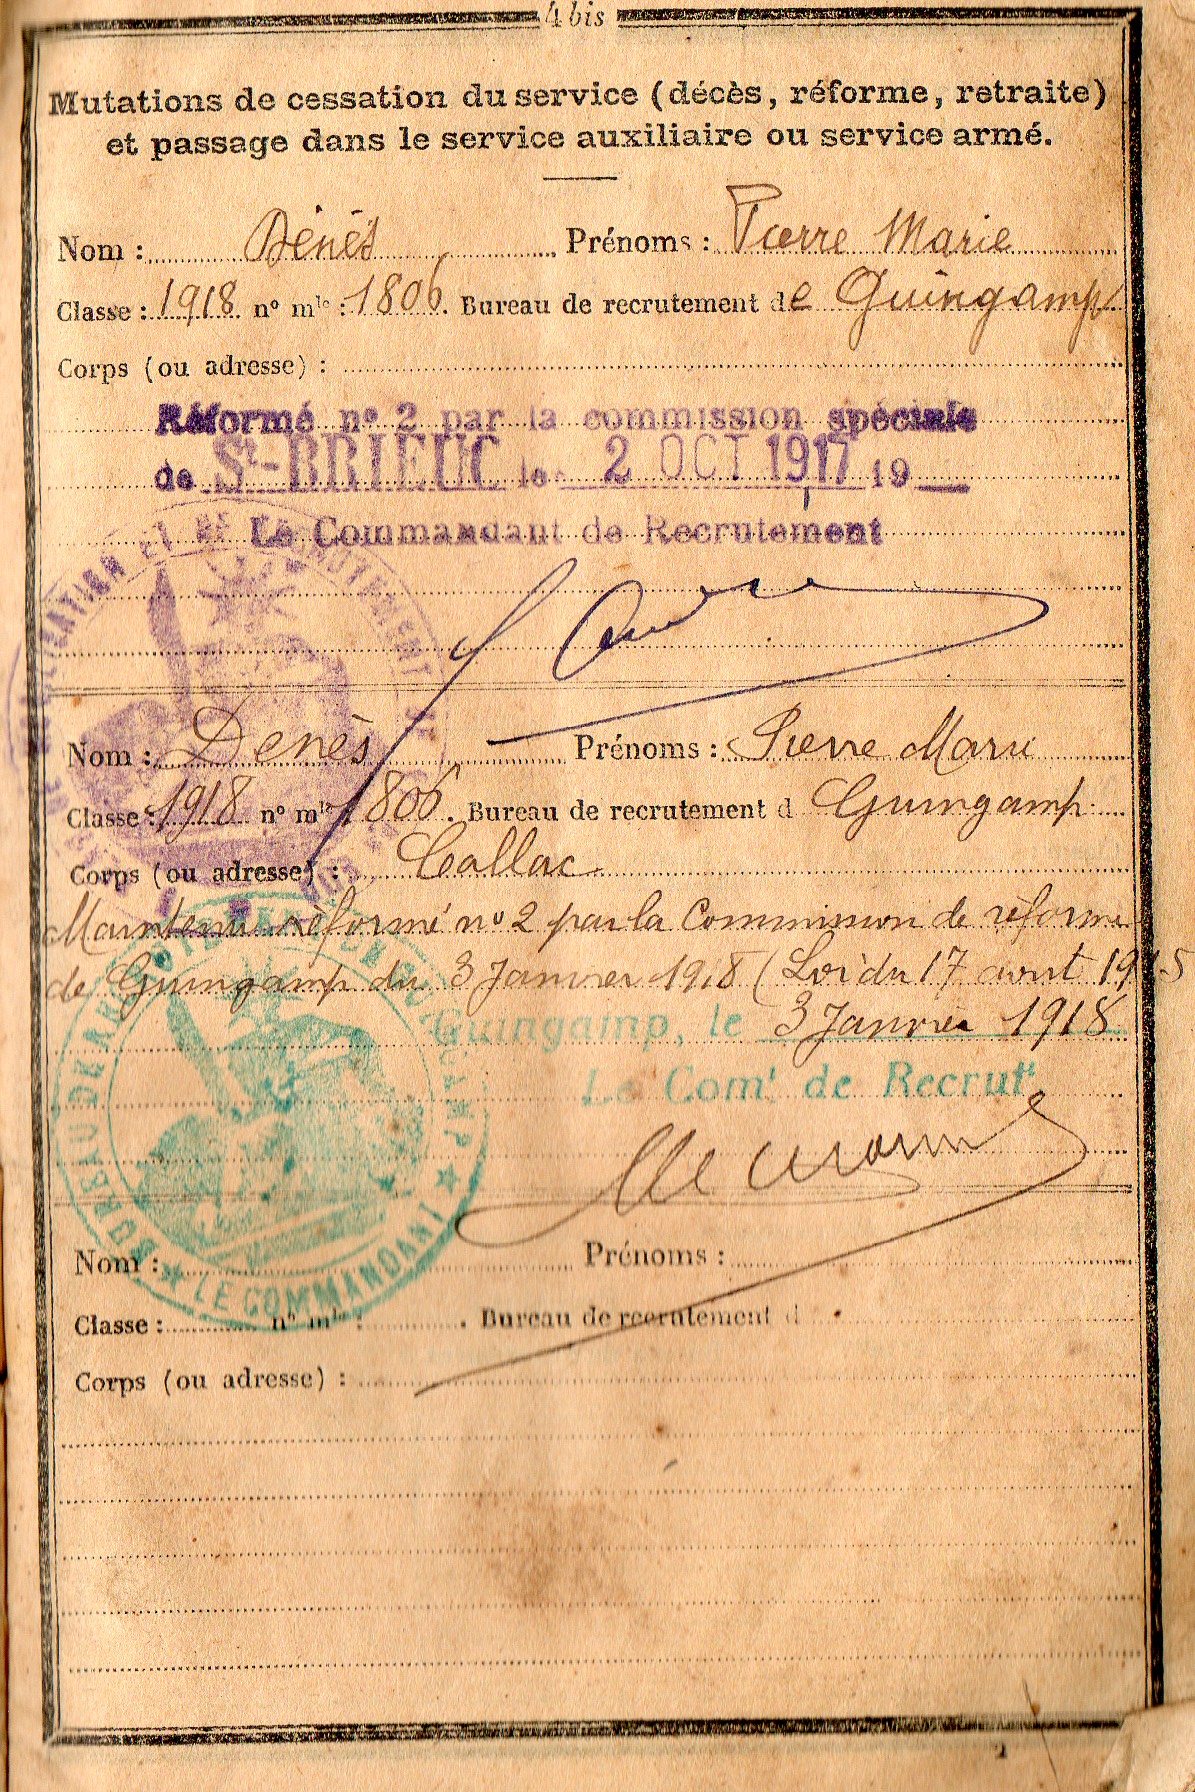 4 bis
Mutations de cessation du service (décès, réforme, retraite)
et passage dans le service auxiliaire ou service armé.
Nom : Dénès Prénoms : Pierre Marie
Classe : 1918 n° mle : 1806. Bureau de recrutement de Guingamp
Corps (ou adresse) :
Réformé n° 2 par la commission spéciale
de St-BRIEUC le 2 OCT 1917 19
Le Commandant de Recrutement
Nom : Denès Prénoms : Pierre Marie
Classe : 1918 n° mle 1806. Bureau de recrutement d Guingamp
Corps (ou adresse) : Callac
Maintenu réformé n° 2 par la Commission de réforme
de Guingamp du 3 Janvier 1918 (Loi du 17 aout 1915
Guingamp, le 3 Janvier 1918
Le Comt de Recrutt
BUREAU DE
LE COMMANDANT
Nom : Prénoms :
Classe : n° mle : . Bureau de recrutement d
Corps (ou adresse) :